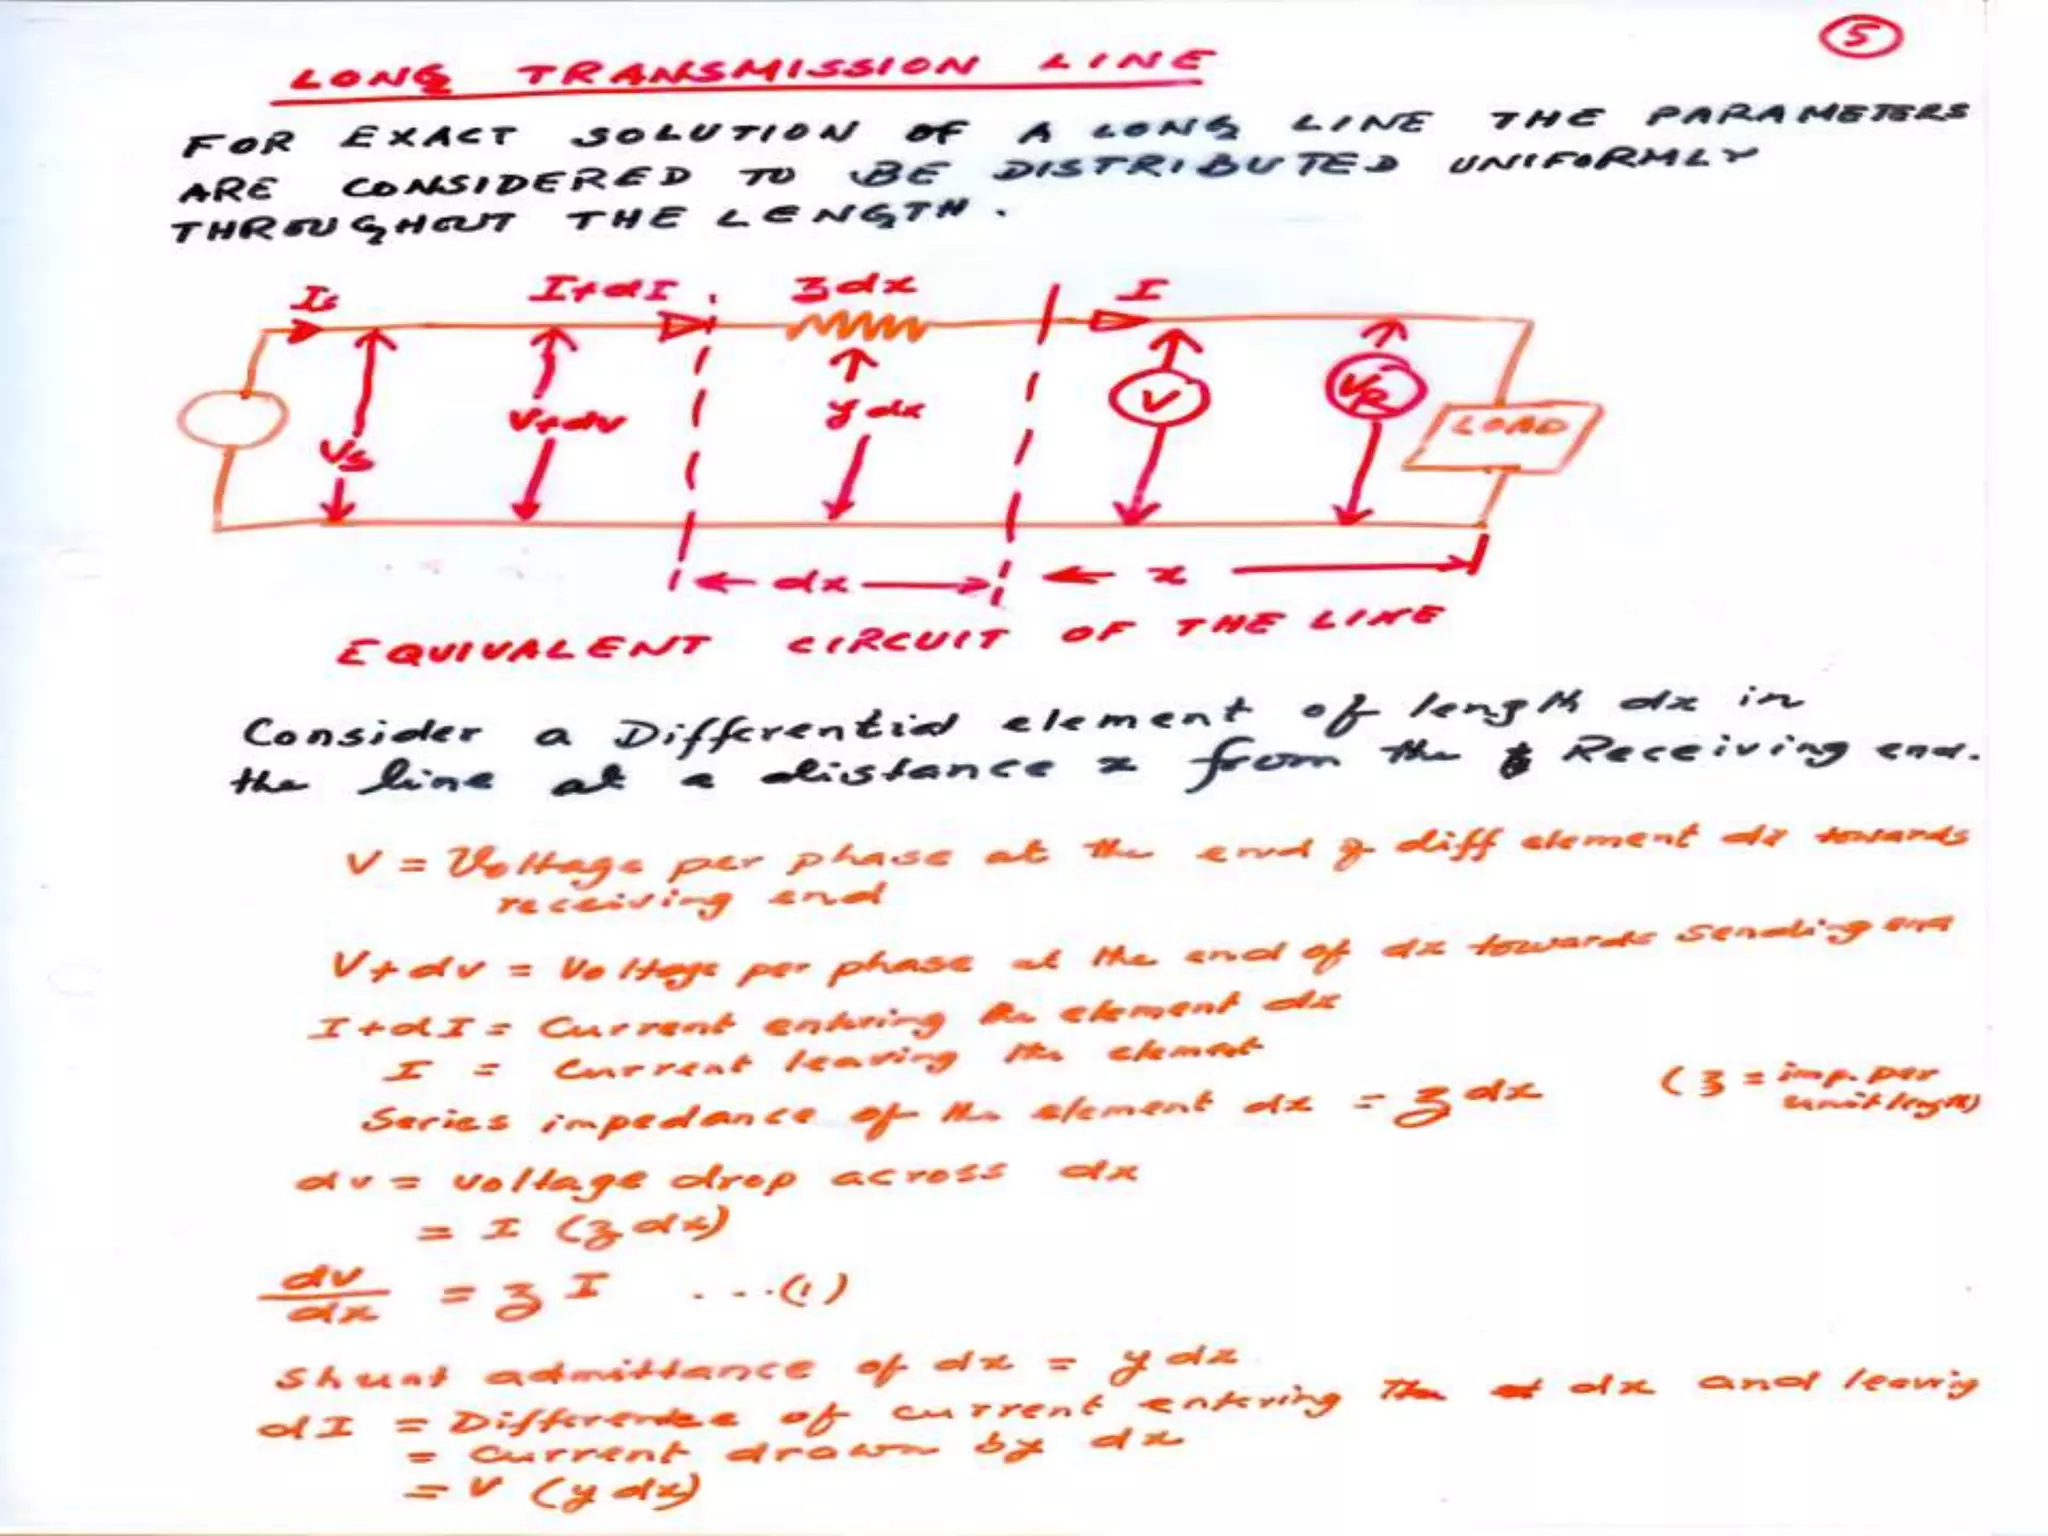 5
LONG TRANSMISSION LINE
FOR EXACT SOLUTION OF A LONG LINE THE PARAMETERS
ARE CONSIDERED TO BE DISTRIBUTED UNIFORMLY
THROUGHOUT THE LENGTH.
Is I+dI zdx I
Vs V+dv ydx V VR LOAD
dx x
EQUIVALENT CIRCUIT OF THE LINE
Consider a Differential element of length dx in
the line at a distance x from the Receiving end.
V = Voltage per phase at the end of diff element dx towards
receiving end
V+dv = Voltage per phase at the end of dx towards Sending end
I+dI = Current entering the element dx
I = Current leaving the element
Series impedance of the element dx = z dx (z = imp. per
unit length)
dv = voltage drop across dx
= I (z dx)
dv/dx = z I ...(1)
Shunt admittance of dx = y dx
dI = Difference of current entering the dx and leaving
= Current drawn by dx
= V (y dx)